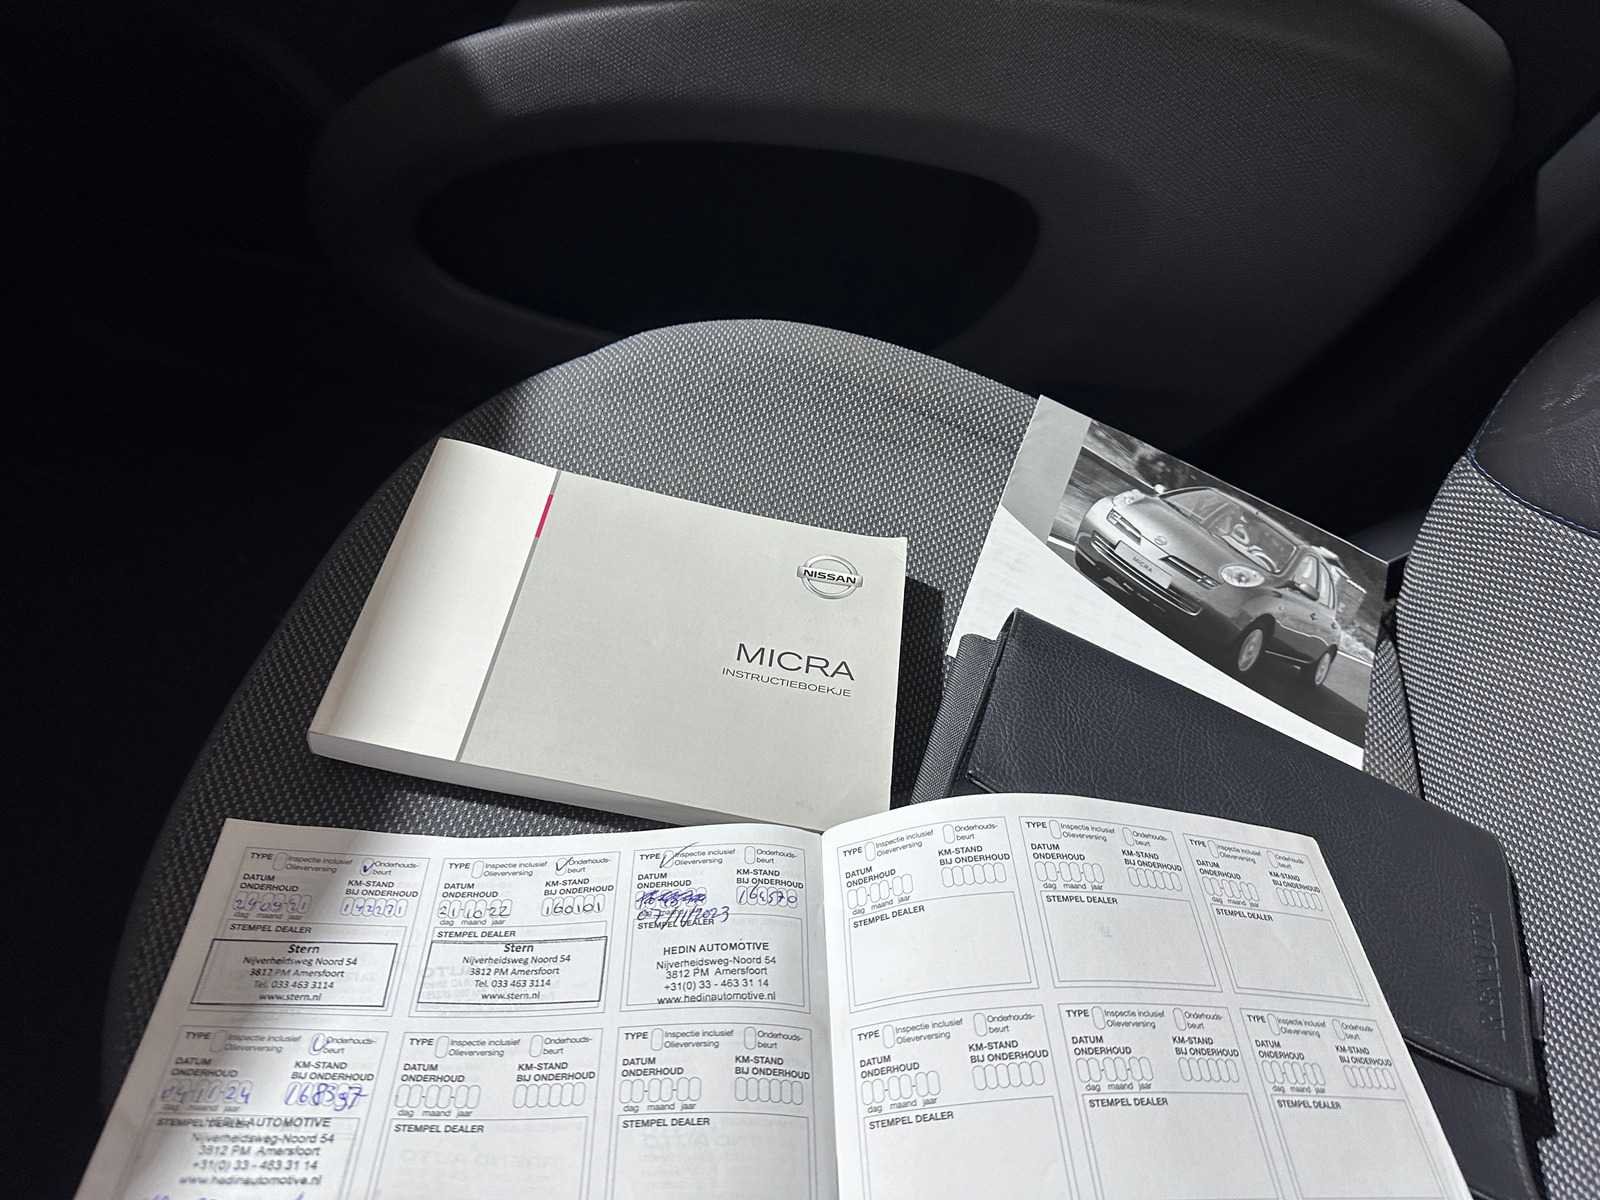 NISSAN
MICRA
INSTRUCTIEBOEKJE
MICRA
TYPE Inspectie inclusief Olieverversing Onderhouds-beurt
DATUM ONDERHOUD KM-STAND BIJ ONDERHOUD
dag maand jaar
STEMPEL DEALER
Stern
Nijverheidsweg Noord 54
3812 PM Amersfoort
Tel. 033 463 3114
www.stern.nl
TYPE Inspectie inclusief Olieverversing Onderhouds-beurt
DATUM ONDERHOUD KM-STAND BIJ ONDERHOUD
21 10 22 160101
dag maand jaar
STEMPEL DEALER
Stern
Nijverheidsweg Noord 54
3812 PM Amersfoort
Tel. 033 463 3114
www.stern.nl
TYPE Inspectie inclusief Olieverversing Onderhouds-beurt
DATUM ONDERHOUD KM-STAND BIJ ONDERHOUD
07/11/2023 164570
STEMPEL DEALER
HEDIN AUTOMOTIVE
Nijverheidsweg-Noord 54
3812 PM Amersfoort
+31(0) 33 - 463 31 14
www.hedinautomotive.nl
TYPE Inspectie inclusief Olieverversing Onderhouds-beurt
DATUM ONDERHOUD KM-STAND BIJ ONDERHOUD
dag maand jaar
STEMPEL DEALER
TYPE Inspectie inclusief Olieverversing Onderhouds-beurt
DATUM ONDERHOUD KM-STAND BIJ ONDERHOUD
dag maand jaar
STEMPEL DEALER
TYPE Inspectie inclusief Olieverversing Onderhouds-beurt
DATUM ONDERHOUD KM-STAND BIJ ONDERHOUD
dag maand jaar
STEMPEL DEALER
TYPE Inspectie inclusief Olieverversing Onderhouds-beurt
DATUM ONDERHOUD KM-STAND BIJ ONDERHOUD
04 11 24 168397
dag maand jaar
STEMPEL DEALER AUTOMOTIVE
Nijverheidsweg-Noord 54
3812 PM Amersfoort
+31(0) 33 - 463 31 14
www.hedinautomotive.nl
TYPE Inspectie inclusief Olieverversing Onderhouds-beurt
DATUM ONDERHOUD KM-STAND BIJ ONDERHOUD
dag maand jaar
STEMPEL DEALER
TYPE Inspectie inclusief Olieverversing Onderhouds-beurt
DATUM ONDERHOUD KM-STAND BIJ ONDERHOUD
dag maand jaar
STEMPEL DEALER
TYPE Inspectie inclusief Olieverversing Onderhouds-beurt
DATUM ONDERHOUD KM-STAND BIJ ONDERHOUD
dag maand jaar
STEMPEL DEALER
TYPE Inspectie inclusief Olieverversing Onderhouds-beurt
DATUM ONDERHOUD KM-STAND BIJ ONDERHOUD
dag maand jaar
STEMPEL DEALER
TYPE Inspectie inclusief Olieverversing Onderhouds-beurt
DATUM ONDERHOUD KM-STAND BIJ ONDERHOUD
dag maand jaar
STEMPEL DEALER